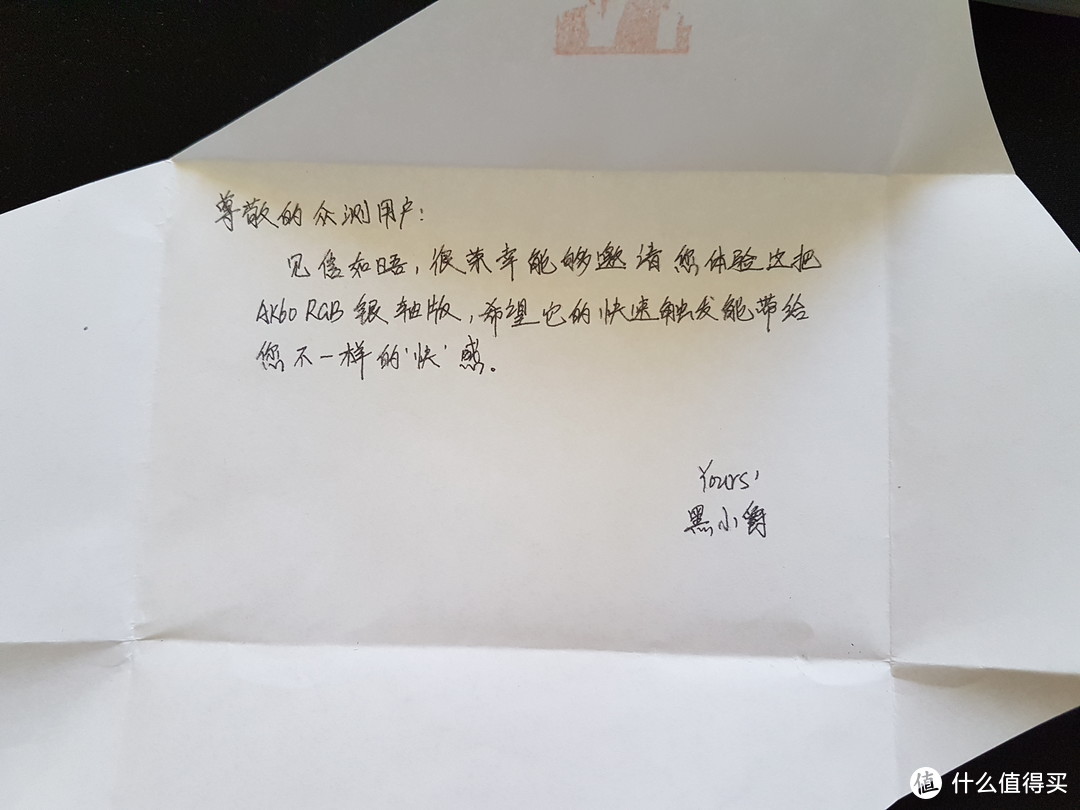 尊敬的众测用户：
见信如晤，很荣幸能够邀请您体验这把
AK60 RGB 银轴版，希望它的快速触发能带给
您不一样的‘快’感。
Yours'
黑小爵
值 什么值得买